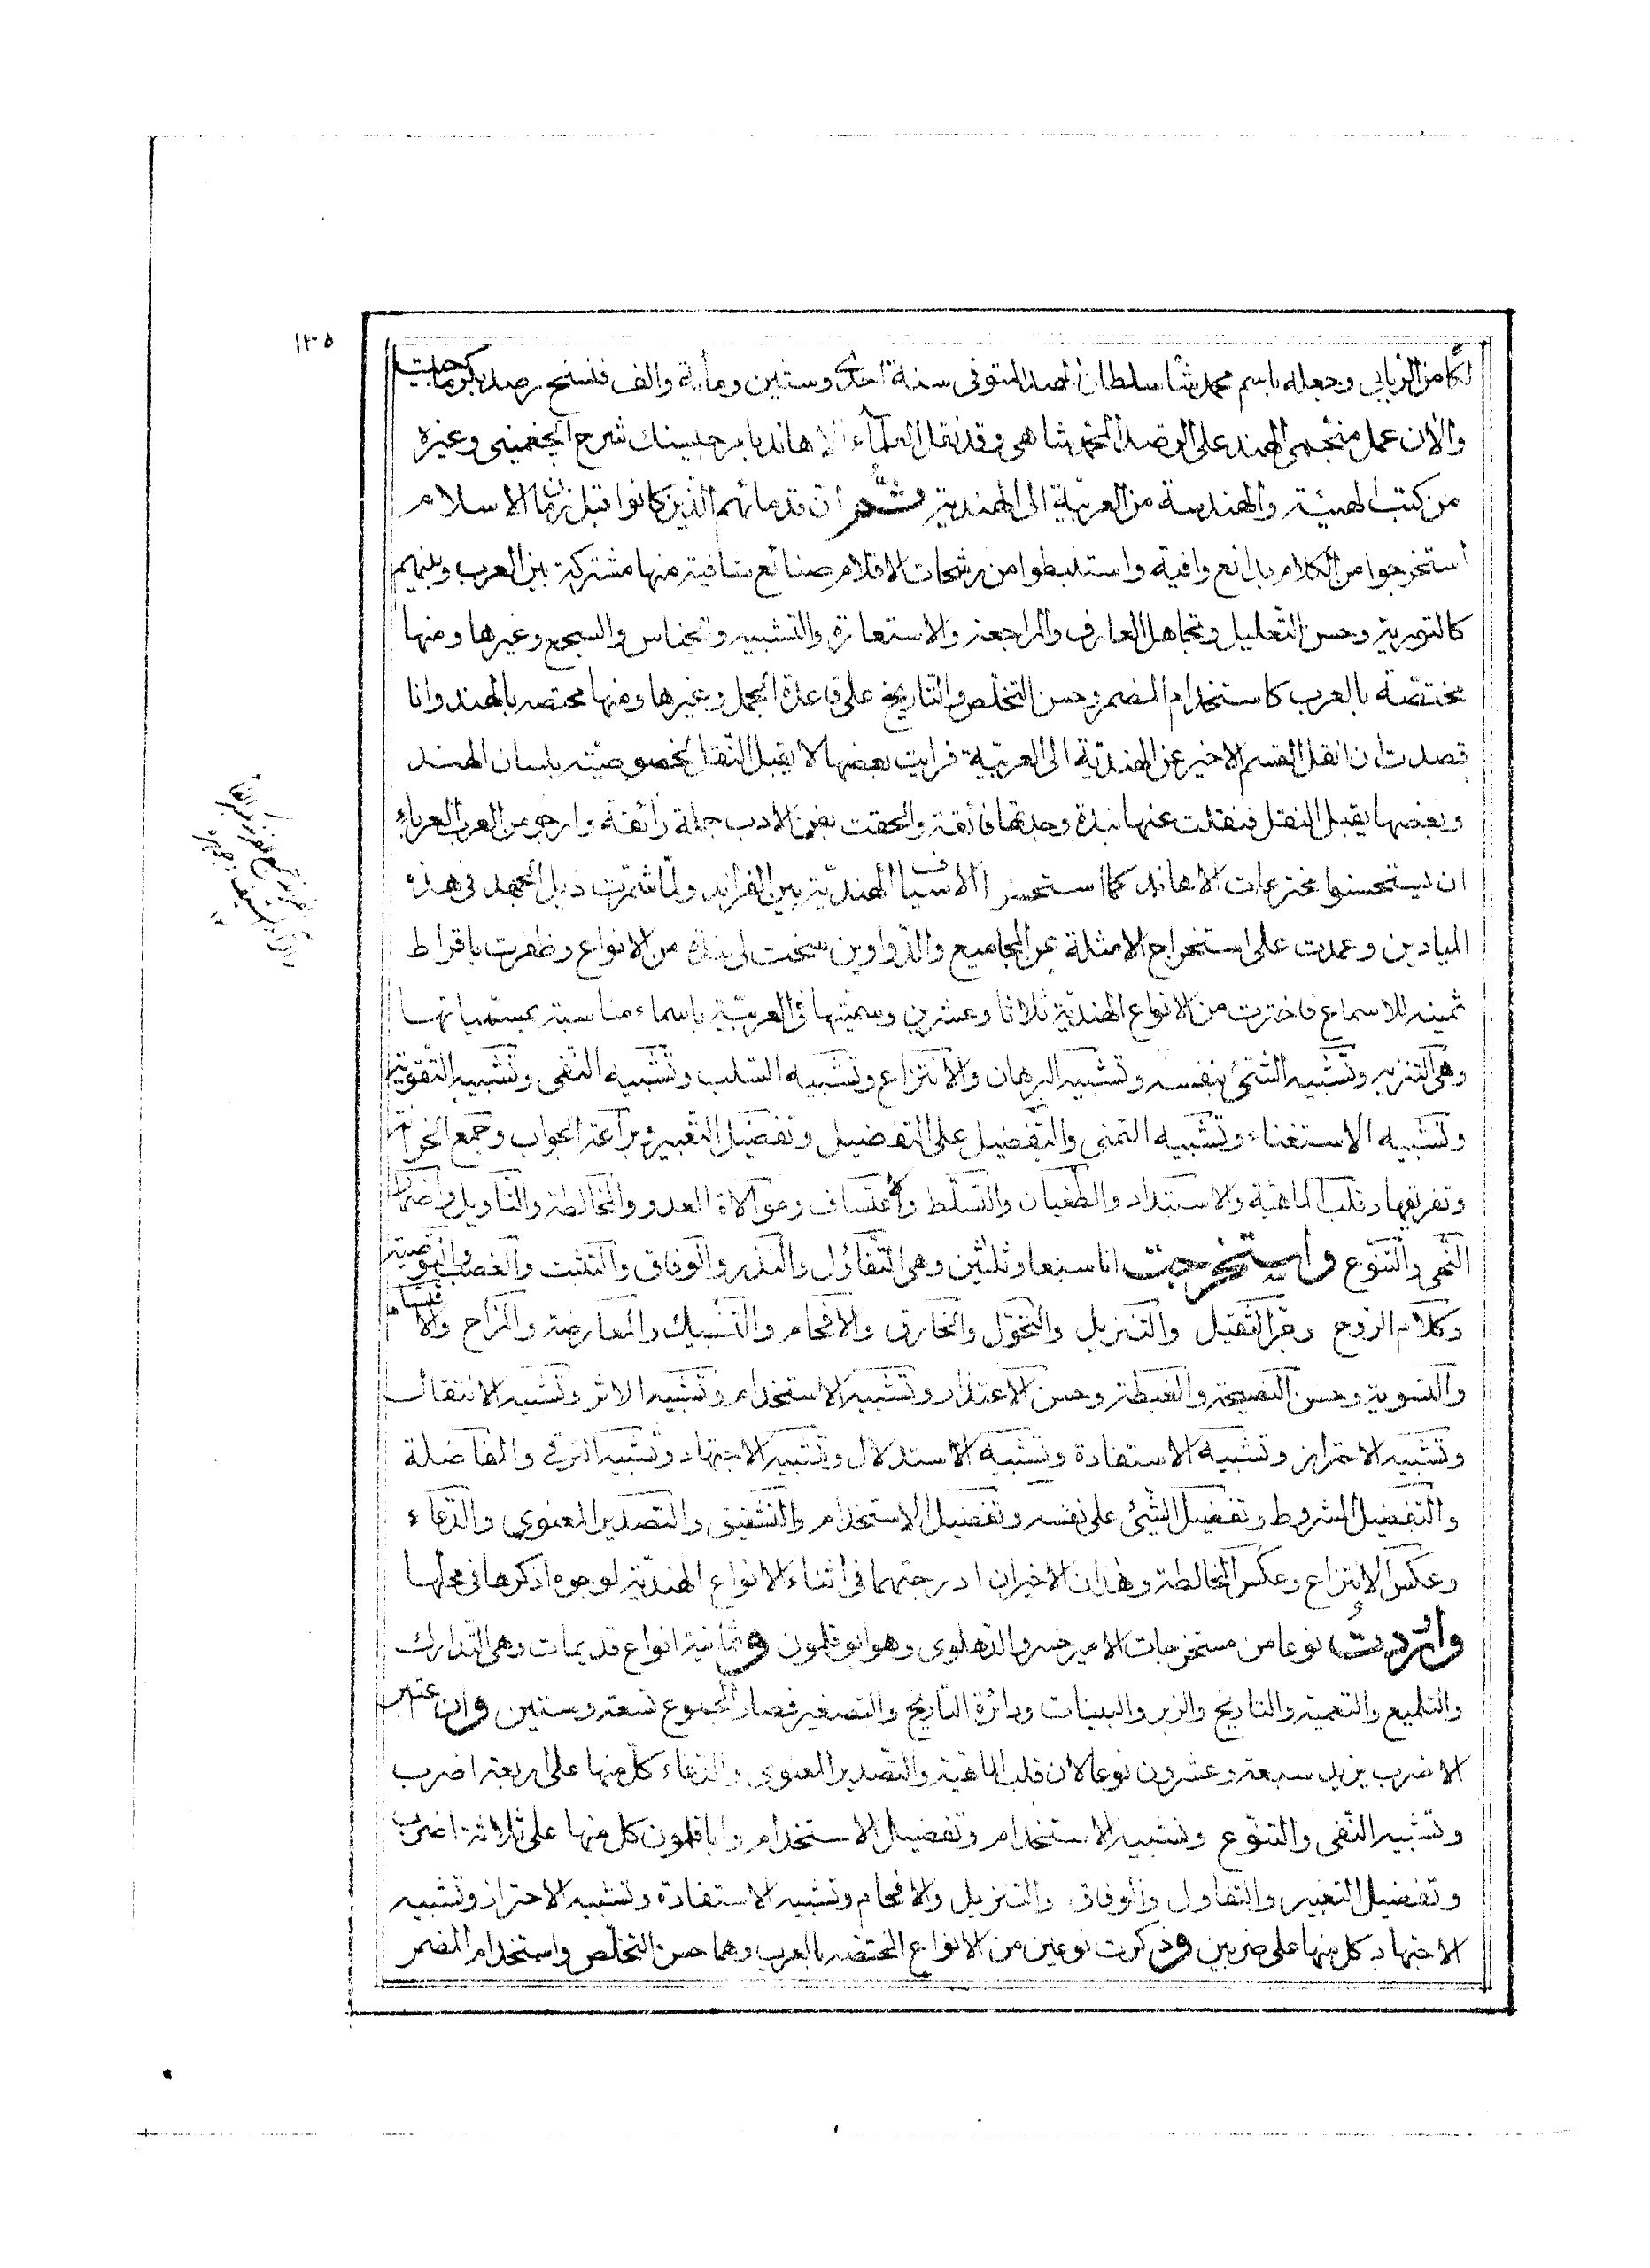 ١٣٥
لكا من الربابي وجعله باسم محمد شا سلطان الهند المتوفى سنة احدى وستين ومأية والف فنسخ رصد بكرماجيت
والأن عمل منجمى الهند على الرصد المحمد شاهى وقد نقل العلمآء الاهاند بامر جيسينك شرح الجغمينى وغيره
من كتب الهيئة والهندسة من العربية الى الهندية ثم ان قدمائهم الذين كانوا قبل زمان الاسلام
استخرجوا من الكلام بدائع وافية واستنبطوا من رشحات الاقلام صنائع شافية منها مشتركة بين العرب وبينهم
كالتورية وحسن التعليل وتجاهل العارف والمراجعة والاستعارة والتشبيه والجناس والسجع وغيرها ومنها
مختصة بالعرب كاستخدام المضمر وحسن التخلص والتاريخ على قاعدة الجمل وغيرها ومنها مختصه بالهند وانا
قصدت ان انقل القسم الاخير عن الهندية الى العربية فرايت بعضها لا يقبل النقل لخصوصيته بلسان الهند
وبعضها يقبل النقل فنقلت عنها نبذة وجدتها فائقة والحقت بفن الادب جملة رائقة وارجو من العرب العرباء
ان يستحسنوا مخترعات الاهاند كما استحسنوا الاسياف الهندية بين الفرائد ولما شمرت ذيل الجهد فى هذه
الميادين وعمدت على استخراج الامثلة عن المجاميع والدواوين سنحت لى نبذة من الانواع وظفرت باقراط
ثمينه للاسماع فاخترت من الانواع الهندية ثلاثا وعشرين وسميتها فى العربية باسماء مناسبة بمسمياتها
وهى التنزيه وتشبيه الشئ بنفسه وتشبيه البرهان والانتزاع وتشبيه السلب وتشبيه النفى وتشبيه التقوية
وتشبيه الاستغناء وتشبيه التمنى والتفضيل على التفضيل وتفضيل التعبير وبراعة الجواب وجمع الخزانة
وتفريقها وقلب الماهية والاستبداد والطغيان والتسلط والاعتساف وموالاة العدو والمخالطة والتاويل واضمار
النهى والتنوع واستخرجت انا سبعا وثلثين وهى التفاؤل والنذر والوفاق والتثبت والغصب والتوصية
وكلام الروح وقر التقبيل والتنزيل والتحول والخارق والافحام والتشبيك والمعارضة والمزاح والاقتسام
والتسوية وحسن النصيحة والغبطة وحسن الاعتذار وتشبيه الاستخدام وتشبيه الاثر وتشبيه الانتقال
وتشبيه الاحتراز وتشبيه الاستفادة وتشبيه الاستدلال وتشبيه الاجتهاد وتشبيه الترقى والمفاضلة
والتفضيل المشروط وتفضيل الشئ على نفسه وتفضيل الاستخدام والتشقيق والتصدير المعنوى والدعاء
وعكس الانتزاع وعكس المخالطة وهذان الاخيران ادرجتهما فى اثناء الانواع الهندية لوجوه اذكرها فى محلها
واوردت نوعا من مستخرجات الامير خسرو الدهلوى وهو ابو قلمون وثمانية انواع قديمات وهى التدارك
والتلميع والتعمية والتاريخ والزبر والبينات ودائرة التاريخ والتصغير فصار المجموع تسعة وستين وان اعتبر
الاضرب يزيد سبعة وعشرون نوعا لان قلب الماهية والتصدير المعنوى والدعاء كل منها على اربعة اضرب
وتشبيه النفى والتنوع وتشبيه الاستخدام وتفضيل الاستخدام وابا قلمون كل منها على ثلاثة اضرب
وتفضيل التعبير والتفاول والوفاق والتنزيل والافحام وتشبيه الاستفادة وتشبيه الاحتراز وتشبيه
الاجتهاد كل منها على ضربين وذكرت نوعين من الانواع المختصه بالعرب وهما حسن التخلص واستخدام المضمر